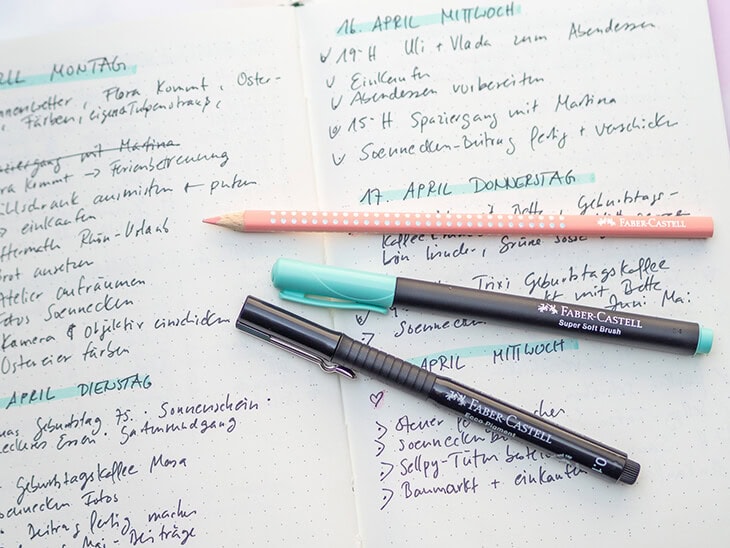 APRIL MONTAG
Flora kommt, Oster-
Färben,
Spaziergang mit Martina
kommt → Ferienbetreuung
ausmisten + putzen
→ einkaufen
Aftermath Rhön-Urlaub
Brot ansetzen
Atelier aufräumen
Fotos Soennecken
Kamera & Objektiv einschicken
Ostereier färben
APRIL DIENSTAG
Geburtstag 75. Sonnenschein.
leckeres Essen. Gartenrundgang
Geburtstagskaffee Mama
Soennecken Fotos
Beitrag fertig machen
Mai-Beiträge
16. APRIL MITTWOCH
19-H Uli + Vlada zum Abendessen
Einkaufen
Abendessen vorbereiten
15-H Spaziergang mit Martina
Soennecken-Beitrag fertig + verschicken
17. APRIL DONNERSTAG
Bette, Geburtstags-
Kaffee
Grüne Soße
Trixi Geburtstagskaffee
mit Bette
Juni Mai
Soennecken
APRIL MITTWOCH
Steuer
Soennecken
Sellpy-Tüten
Baumarkt + einkaufen
FABER-CASTELL
FABER-CASTELL
Super Soft Brush
FABER-CASTELL
Ecco Pigment